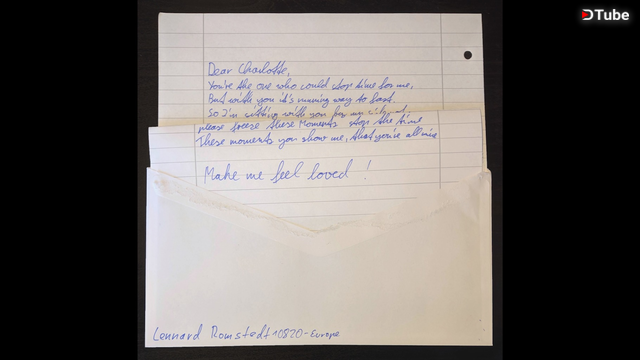 DTube
Dear Charlotte,
You're the one who could stop time for me,
But with you it's running way to fast.
So I'm sitting with you for my
please freeze these Moments stop the time
These moments you show me, that you're all mine
Make me feel loved !
Lennard Romstedt 10820-Europe